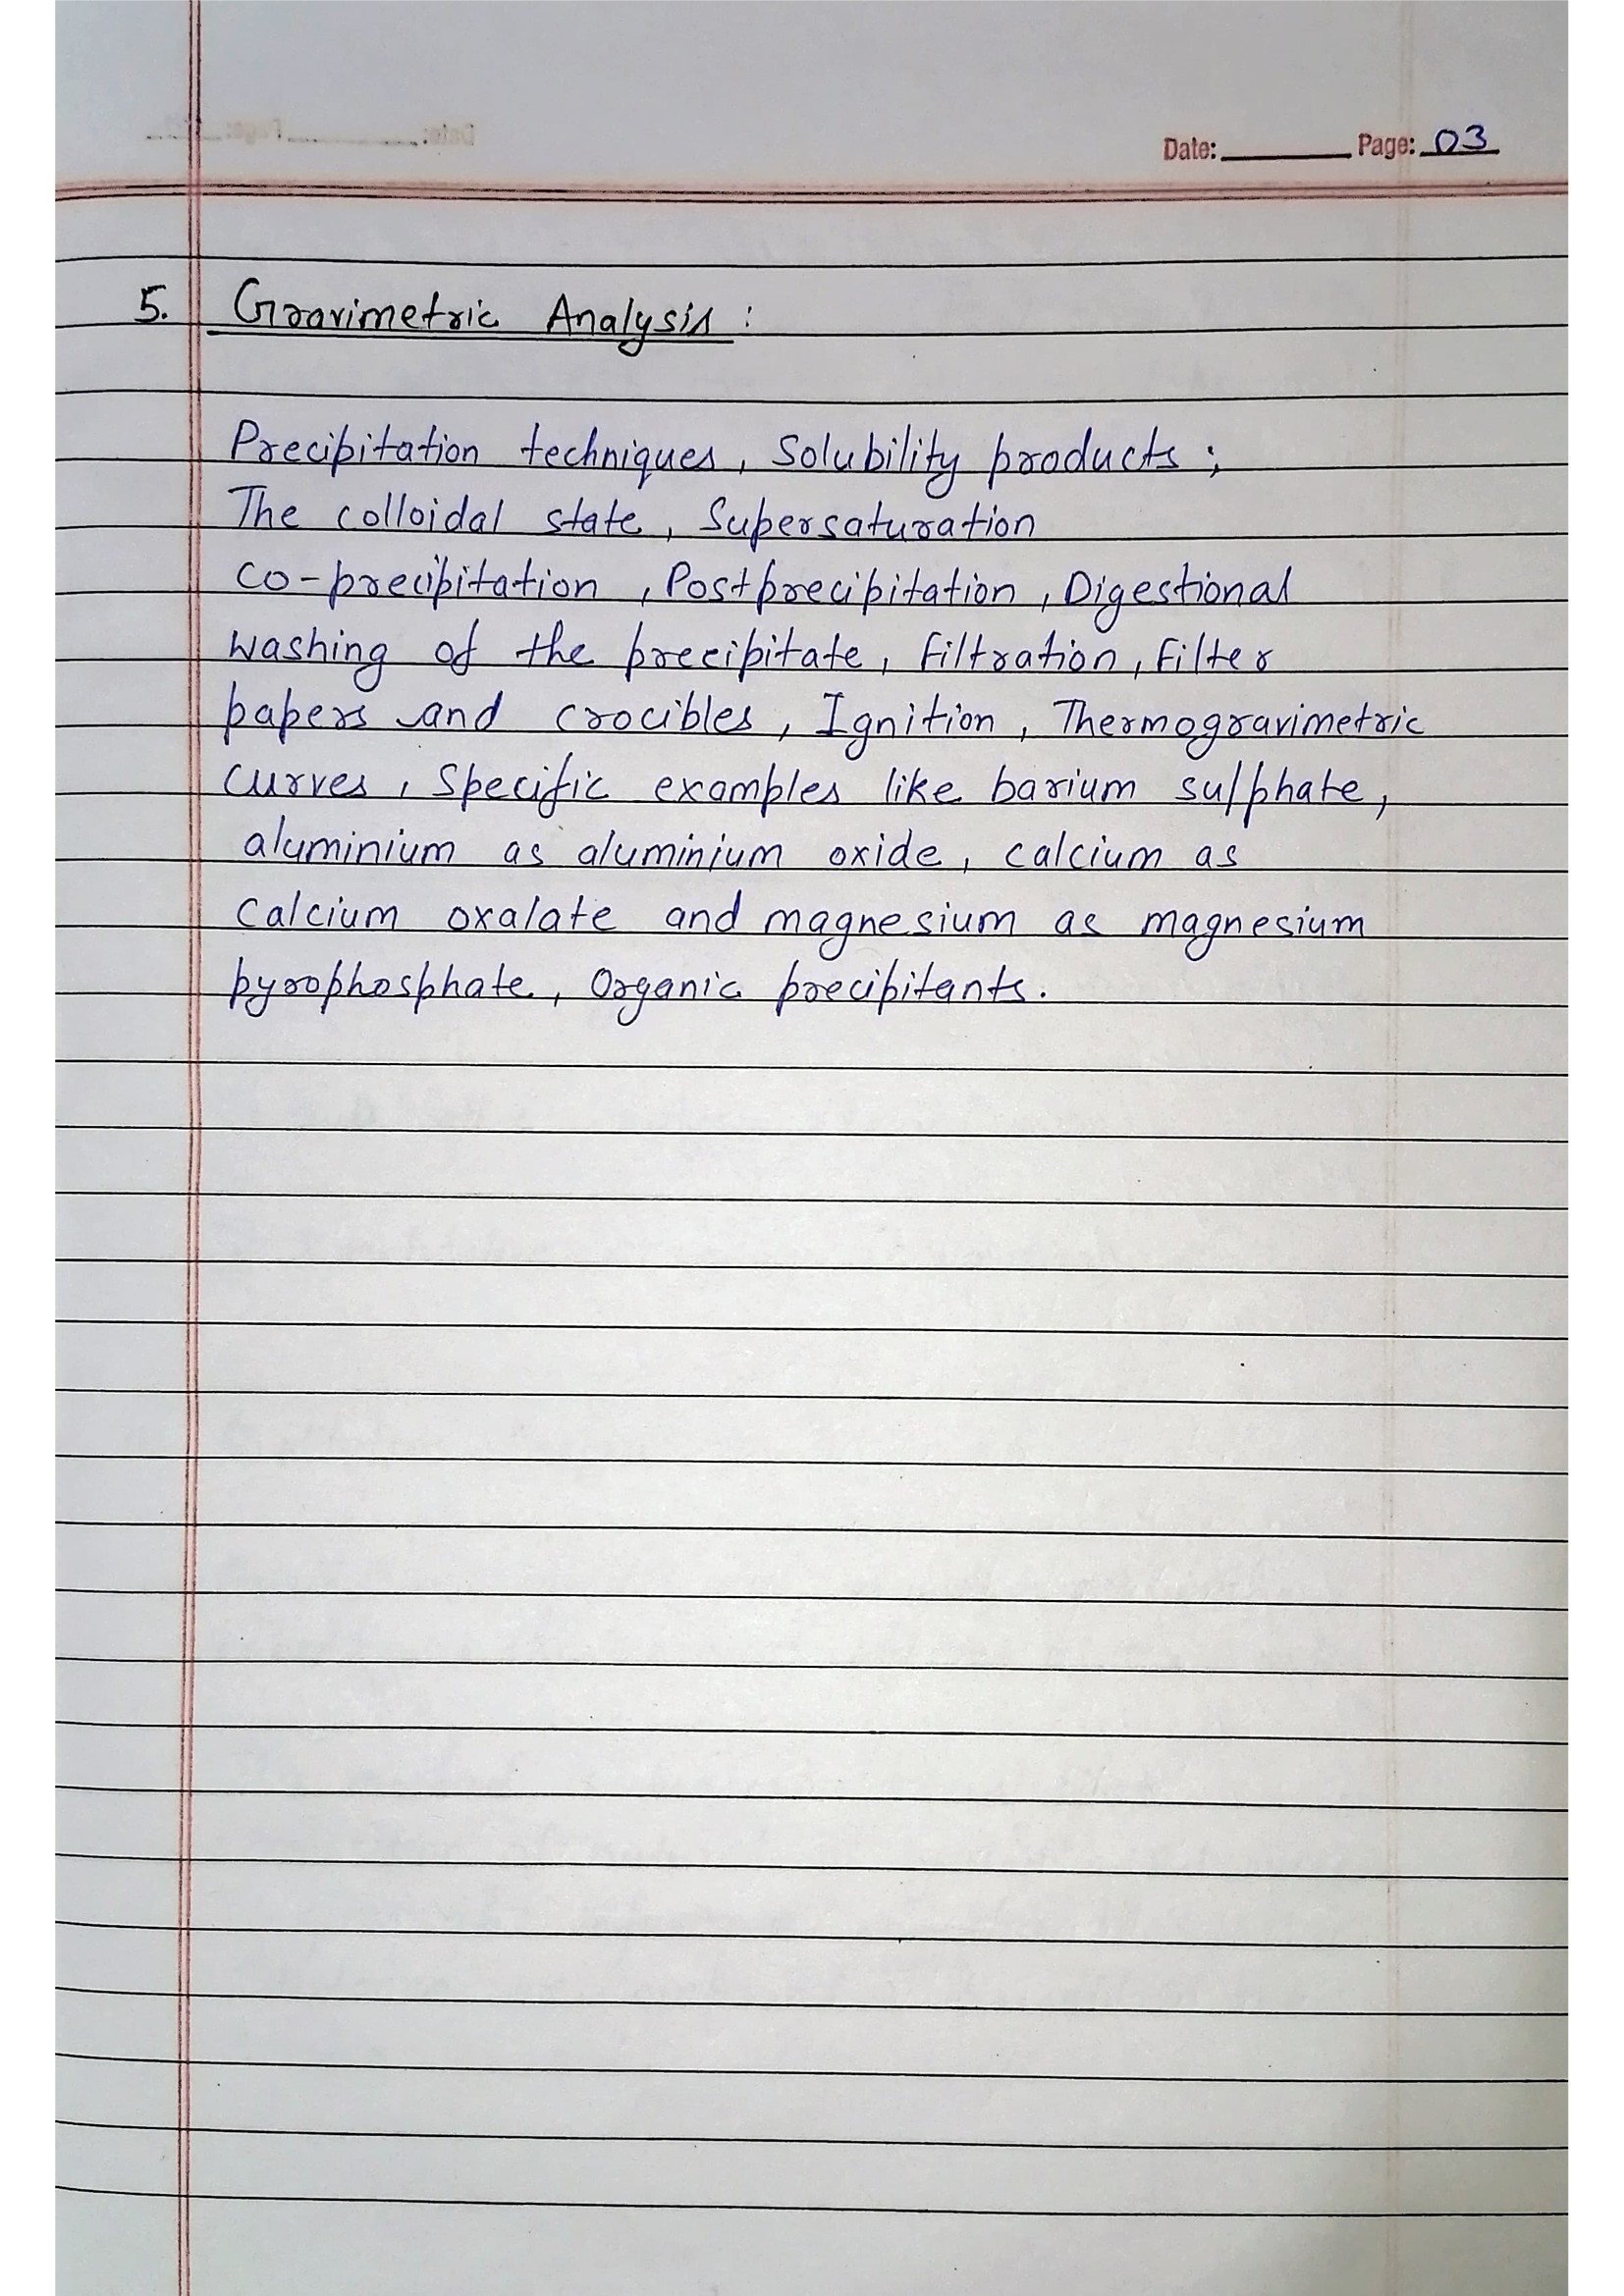 Date: Page: 03
5. Gravimetric Analysis :
Precipitation techniques, Solubility products ;
The colloidal state, Supersaturation
co-precipitation, Postprecipitation, Digestional
washing of the precipitate, filtration, filter
papers and crocibles, Ignition, Thermogravimetric
curves, Specific examples like barium sulphate,
aluminium as aluminium oxide, calcium as
Calcium oxalate and magnesium as magnesium
pyrophosphate, Organic precipitants.